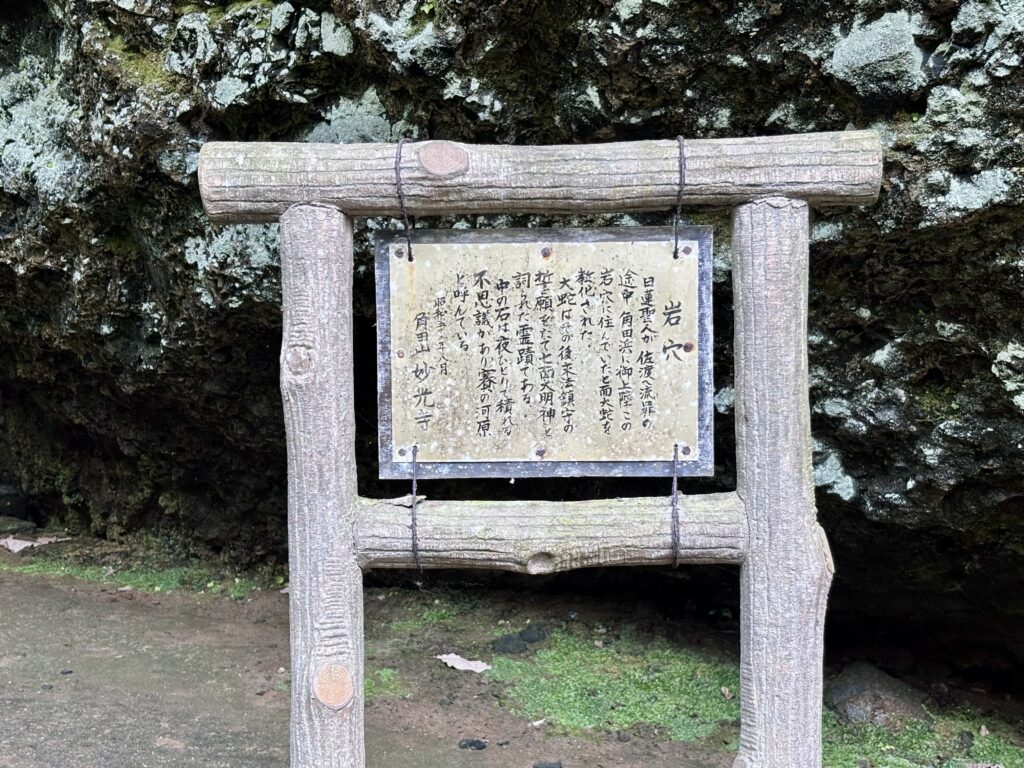 岩穴
日蓮聖人が佐渡へ流罪の
途中角田浜に御上陸この
岩穴に住んでいた七面大蛇を
教化された。
大蛇はその後末法鎮守の
誓願をたて七面大明神と
詞られた霊蹟である。
中の石は夜ひとりで積れる
不思議があり賽の河原
と呼んでいる
昭和五二年八月
角田山妙光寺